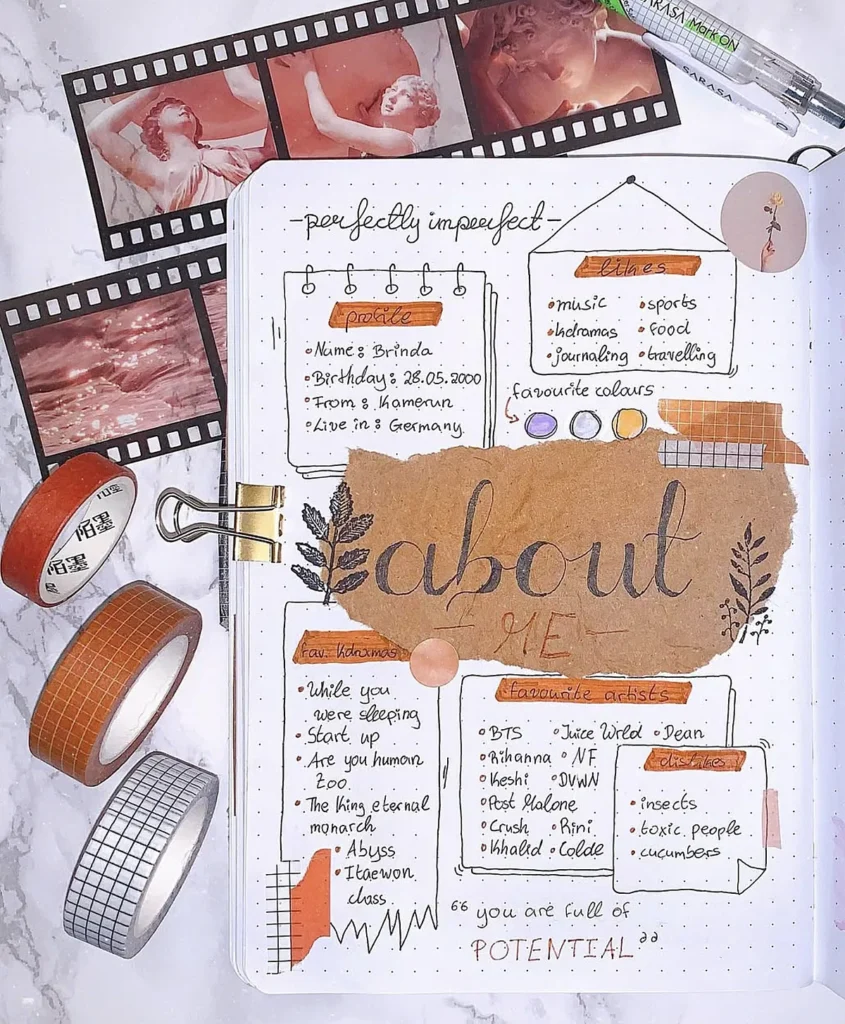 SARASA Mark ON
SARASA
-perfectly imperfect-
likes
•music •sports
•kdramas •food
•journaling •travelling
profile
•Name: Brinda
•Birthday: 28.05.2000
•From: Kamerun
•Live in: Germany
favourite colours
about
- ME -
fav. Kdramas
•While you
were sleeping
•Start up
•Are you human
too
•The King eternal
monarch
•Abyss
•Itaewon
class
favourite artists
•BTS •Juice Wrld •Dean
•Rihanna •NF
•Keshi •DVWN
•Post Malone
•Crush •Rini
•Khalid •Colde
dislikes
•insects
•toxic people
•cucumbers
“you are full of
POTENTIAL”
陌墨
陌墨